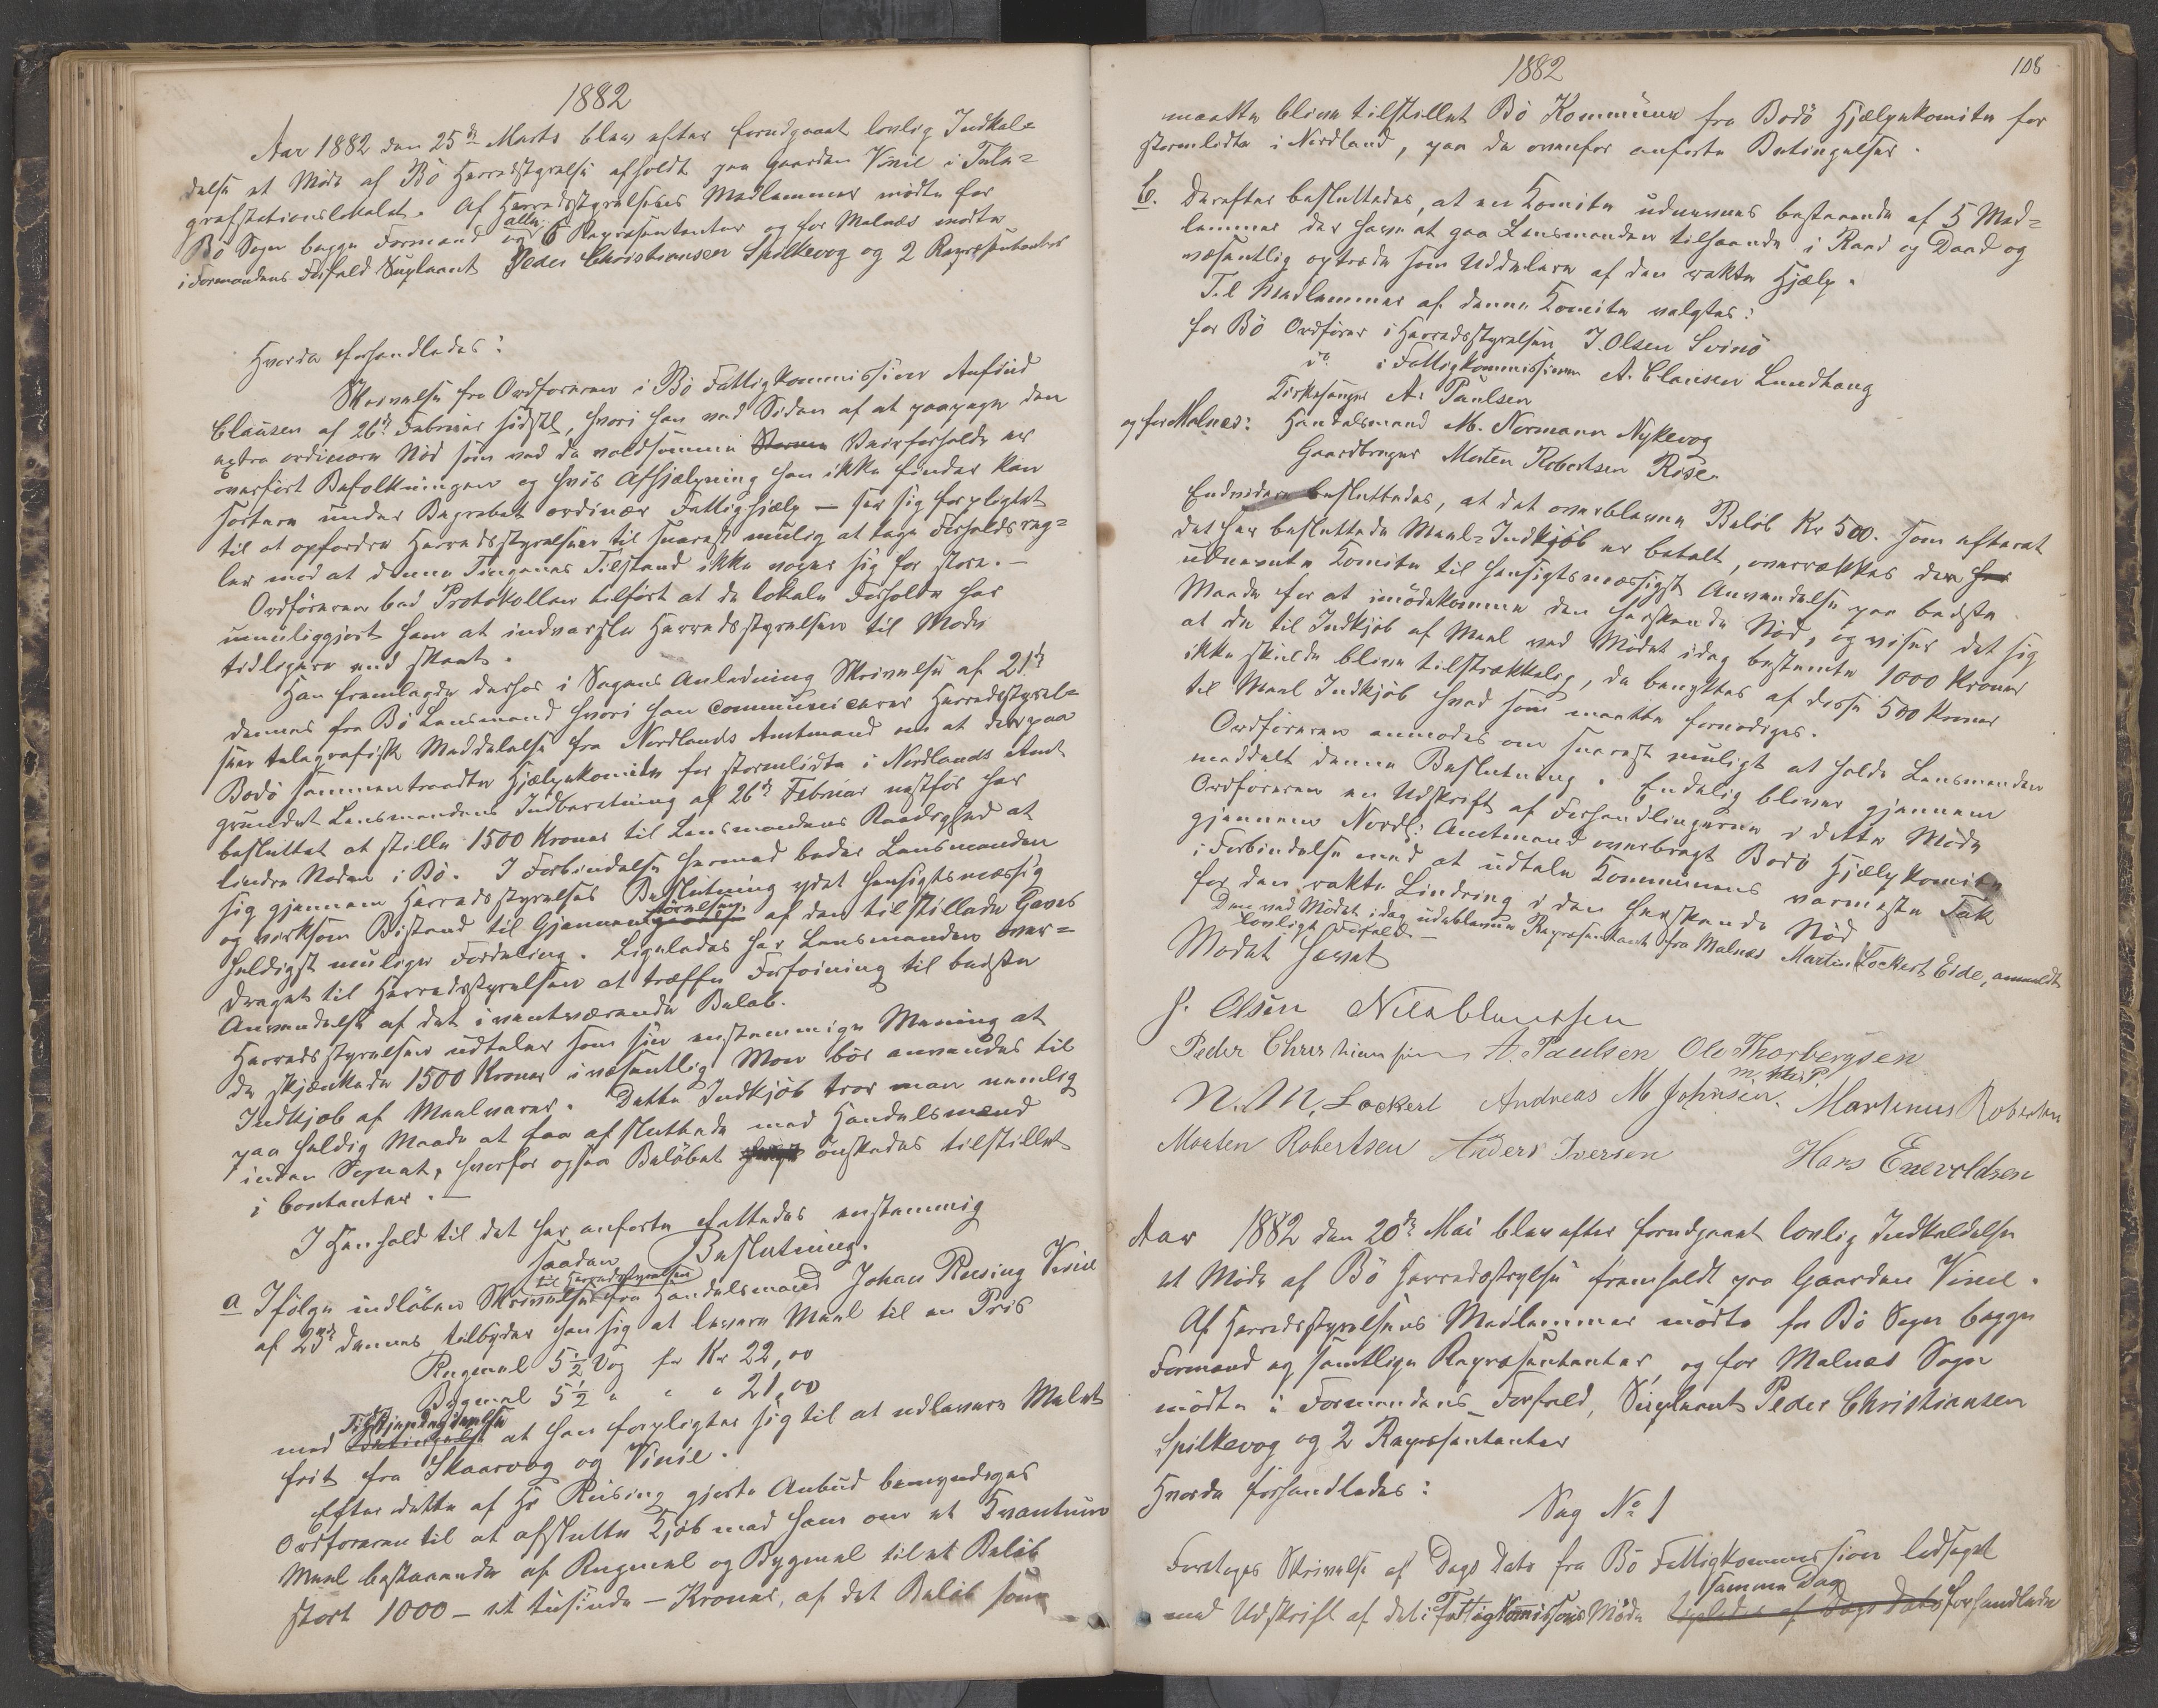 1882
Aar 1882 den 25de Marts blev efter forudgaaet lovlig Indkal=
delse et Møde af Bö Herredstyrelse afholdt paa gaarden Vinie i Tele=
grafstationslokalet. Af Herredsstyrelsens Medlemmer mødte for
Bö Sogn begge Formænd og alle 6 Repræsentanter og for Malnæs mødte
i Formandens Forfald Supleant Peder Christiansen Spilkevog og 2 Repræsentanter
Hvorda forhandledes:
Skrivelse fra Ordföreren i Bö Fattigkommission Anfind
Clausen af 26de Februar sidstl, hvori han ved Siden af at paapege den
extra ordinære Nöd som ved de voldsomme Storme Veirforholde er
overfört Befolkningen og hvis Afhjælpning han ikke finder kan
sortere under Begrebet ordinær Fattighjælp – ser sig forpligtet
til at opfordre Herredsstyrelsen til snarest mulig at tage Forholdsreg=
ler mod at denne Tingenes Tilstand ikke voxer sig for store. –
Ordföreren bad Protokollen tilfört at de lokale Forholde har
umuliggjort ham at indvarsle Herredsstyrelsen til Møde
tidligere end skeet.
Han fremlagde derhos i Sagens Anledning Skrivelse af 21de
dennes fra Bö Lensmand hvori han communicerer Herredsstyrel=
sen telegrafisk Meddelelse fra Nordlands Amtmand om at den paa
Bodö sammentraadte Hjælpekomite for stormlidte i Nordlands Amt
grundet Lensmandens Indberetning af 26de Februar næstför har
besluttet at stille 1500 Kroner til Lensmandens Raadighed at
lindre Nöden i Bö. I Forbindelse hermed beder Lensmanden
sig gjennem Herredsstyrelsens Beslutning ydet hensigtsmæssig
og virksom Bistand til Gjennemförelsen af den tilstillede Gaves
heldigst mulige Fordeling. Ligeledes har Lensmanden over=
draget til Herredsstyrelsen at træffe Forföining til bedste
Anvendelse af det iventeværende Belöb.
Herredsstyrelsen udtaler som sin enstemmige Mening at
de skjænkede 1500 Kroner i væsentlig Mon bör anvendes til
Indkjöb af Meelvarer. Dette Indkjöb tror man nemlig
paa heldig Maade at faa afsluttede med Handelsmænd
inden Sognet, hvorfor ogsaa Belöbet önskedes tilstillet
i Contanter. –
I Henhold til det her anförte fattedes enstemmig
saadan Beslutning.
a Ifölge indlöben Skrivelse til Herredsstyrelsen fra Handelsmand Johan Reusing Vinie
af 23de dennes tilbyder han sig at levere Meel til en Pris
Rugmel 5½ Vog for Kr 22,00
Bygmel 5½ " " " 21,00
med Tilkjendegivelse at han forpligter sig til at udlevere Melet
frit fra Skaarvog og Vinie.
Efter dette af Hr Reusing gjorte Anbud bemyndiges
Ordföreren til at afslutte Kjöb med ham om et Kvantum
Meel bestaaende af Rugmel og Bygmel til et Belöb
stort 1000 – et tusinde – Kroner, af det Belöb som
1882
108
maatte blive tilstillet Bö Kommune fra Bodö Hjælpekomite for
stormlidte i Nordland, paa de ovenfor anförte Betingelser.
b. Derefter besluttedes, at en Komite udnævnes bestaaende af 5 Med=
lemmer der have at gaa Lensmanden tilhaande i Raad og Daad og
væsentlig optræde som Uddelere af den rakte Hjælp.
Til Medlemmer af denne Komite valgtes:
for Bö Ordförer i Herredsstyrelsen J. Olsen Svinö
do i Fattigkommissionen A. Clausen Lundhaug
Kirkesanger A. Paulsen
og for Malnes: Handelsmand M. Normann Nykevog
Gaardbruger Morten Robertsen Rise.
Endvidere besluttedes, at det overblevne Belöb Kr 500. som efterat
det her besluttede Meel-Indkjöb er betalt, overrækkes den her
udnævnte Komite til hensigtsmæssigst Anvendelse paa bedste
Maade for at imödekomme den herskende Nöd, og viser det sig
at de til Indkjöb af Meel ved Mödet idag bestemte 1000 Kroner
ikke skulde blive tilstrækkelig, da benyttes af disse 500 Kroner
til Meel Indkjöb hvad som maatte fornödiges.
Ordföreren anmodes om snarest muligt at holde Lensmanden
meddelt denne Beslutning. Endelig bliver gjennem
Ordföreren en Udskrift af Forhandlingerne i dette Möde
gjennem Nordl. Amtmand overbragt Bodö Hjælpkomite
i Forbindelse med at udtale Kommunens varmeste Tak
for den rakte Lindring i den herskende Nöd
Den ved Mödet idag udeblevne Repræsentant fra Malnæs Martin Lockert Eide, anmeldt
lovligt Forfald. –
Mödet hævet
J. Olsen Nils Clausen
Peder Christiansen A. Paulsen Ole Thorbergsen
m. p. P.
N. M. Lockert Andreas M Johnsen. Martinus Robertsen
Morten Robertsen Anders Iversen Hans Enevoldsen
Aar 1882 den 20de Mai blev efter forudgaaet lovlig Indkaldelse
et Möde af Bö Herredsstyrelse fremholdt paa Gaarden Vinie.
Af Herredsstyrelsens Medlemmer mödte for Bö Sogn begge
Formænd og samtlige Repræsentanter, og for Malnæs Sogn
mödte i Formandens Forfald, Supleant Peder Christiansen
Spilkevog og 2 Repræsentanter
Hvorda forhandledes:
Sag No 1
Foretoges Skrivelse af Dags Dato fra Bö Fattigkommission ledsaget
med Udskrift af det i Fattigkommissions Möde samme Dag af Dags Dato forhandlede